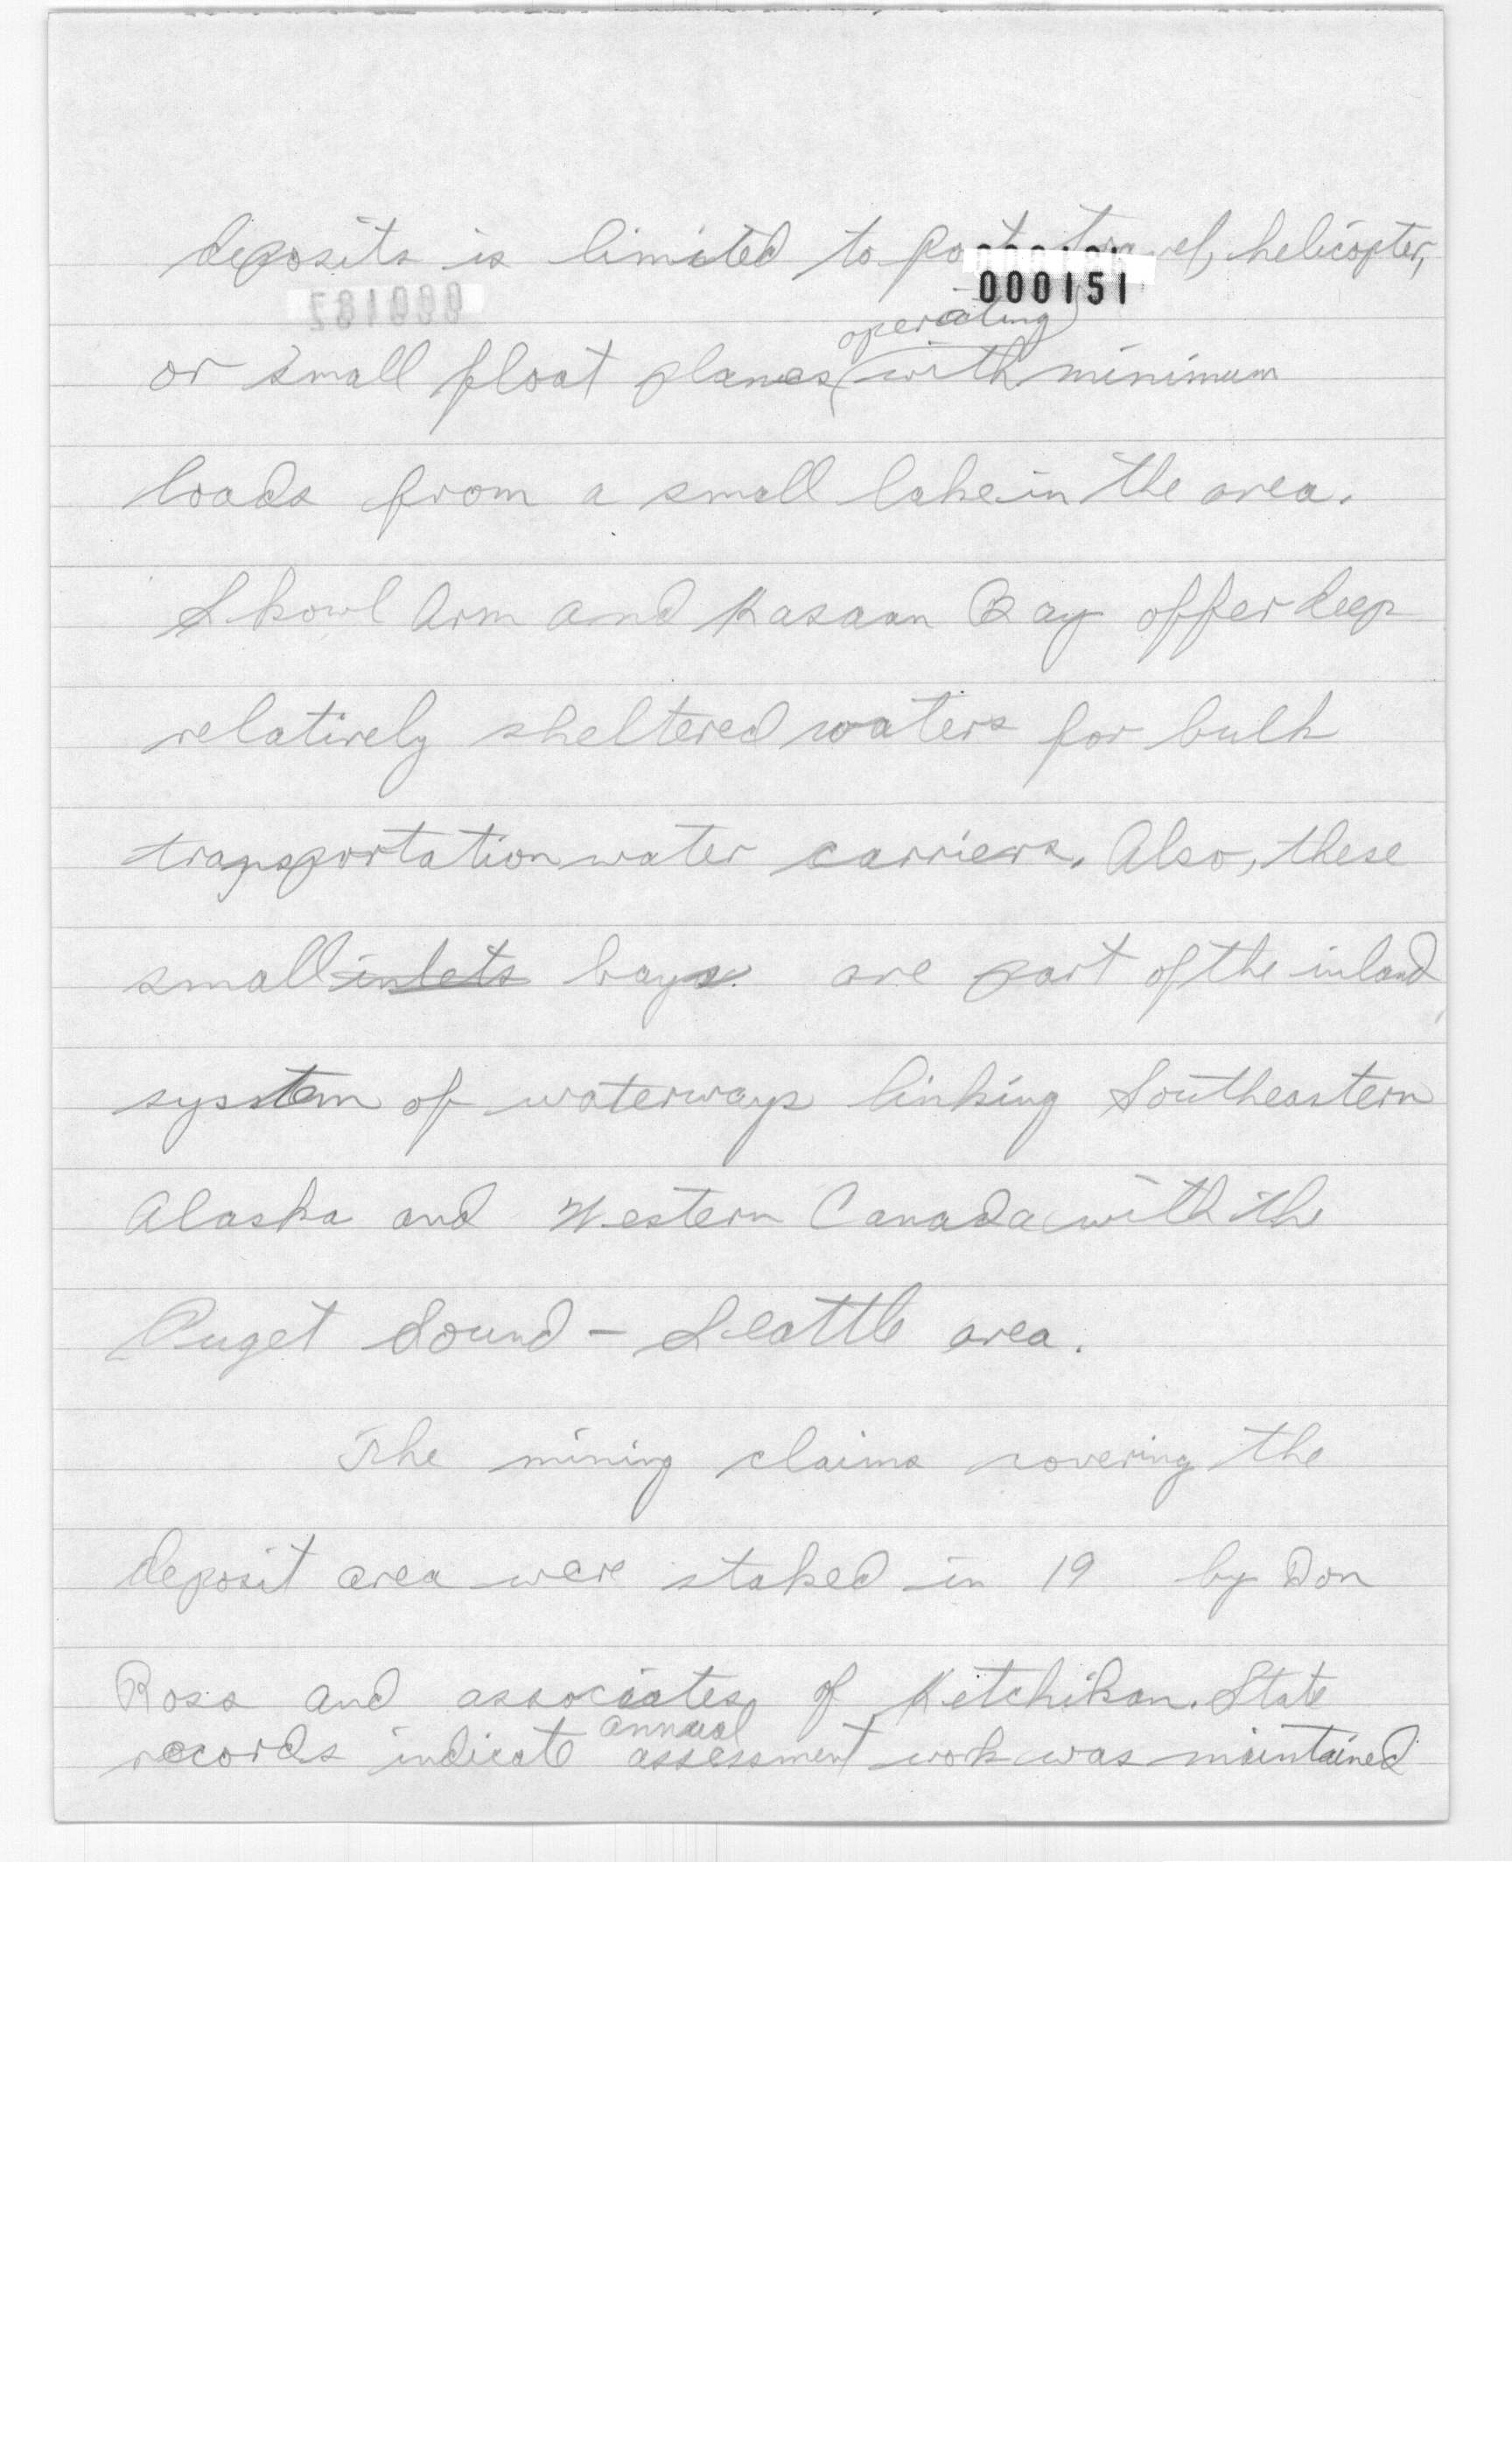 deposits is limited to foot travel, helicopter,
000151
operating
or small float planes with minimum
loads from a small lake in the area.
Skowl Arm and Kasaan Bay offer deep
relatively sheltered waters for bulk
transportation water carriers. Also, these
small inlets bays are part of the inland
system of waterways linking Southeastern
Alaska and Western Canada with the
Puget Sound - Seattle area.
The mining claims covering the
deposit area were staked in 19 by Don
Ross and associates of Ketchikan. State
annual
records indicate assessment work was maintained